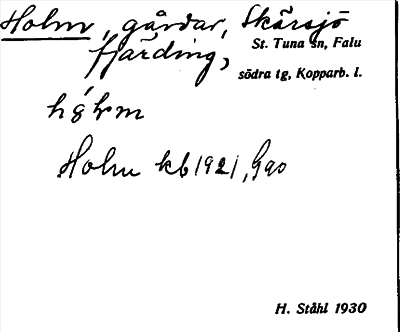 Holm, gårdar, Skärsjö
fjärding, St. Tuna sn, Falu
södra tg, Kopparb. l.
Holm kb 1921, Gao
H. Ståhl 1930